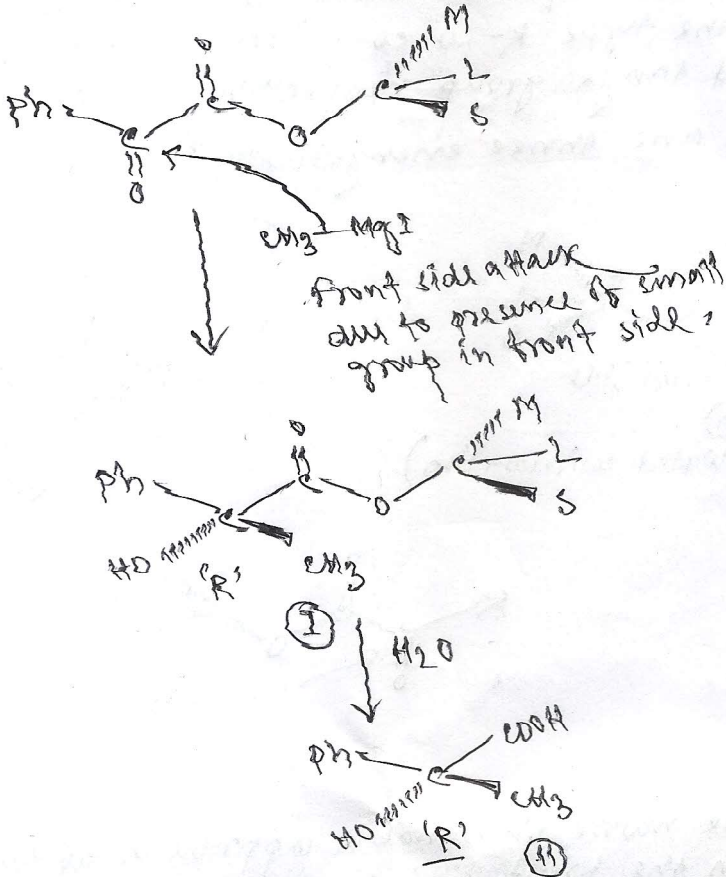 O M
Ph C C L
C O S
O
CH3 MgI
front side attack
due to presence of small
group in front side.
O M
Ph C C L
C O S
HO CH3
'R'
I
H2O
Ph C COOH
HO CH3
'R' II